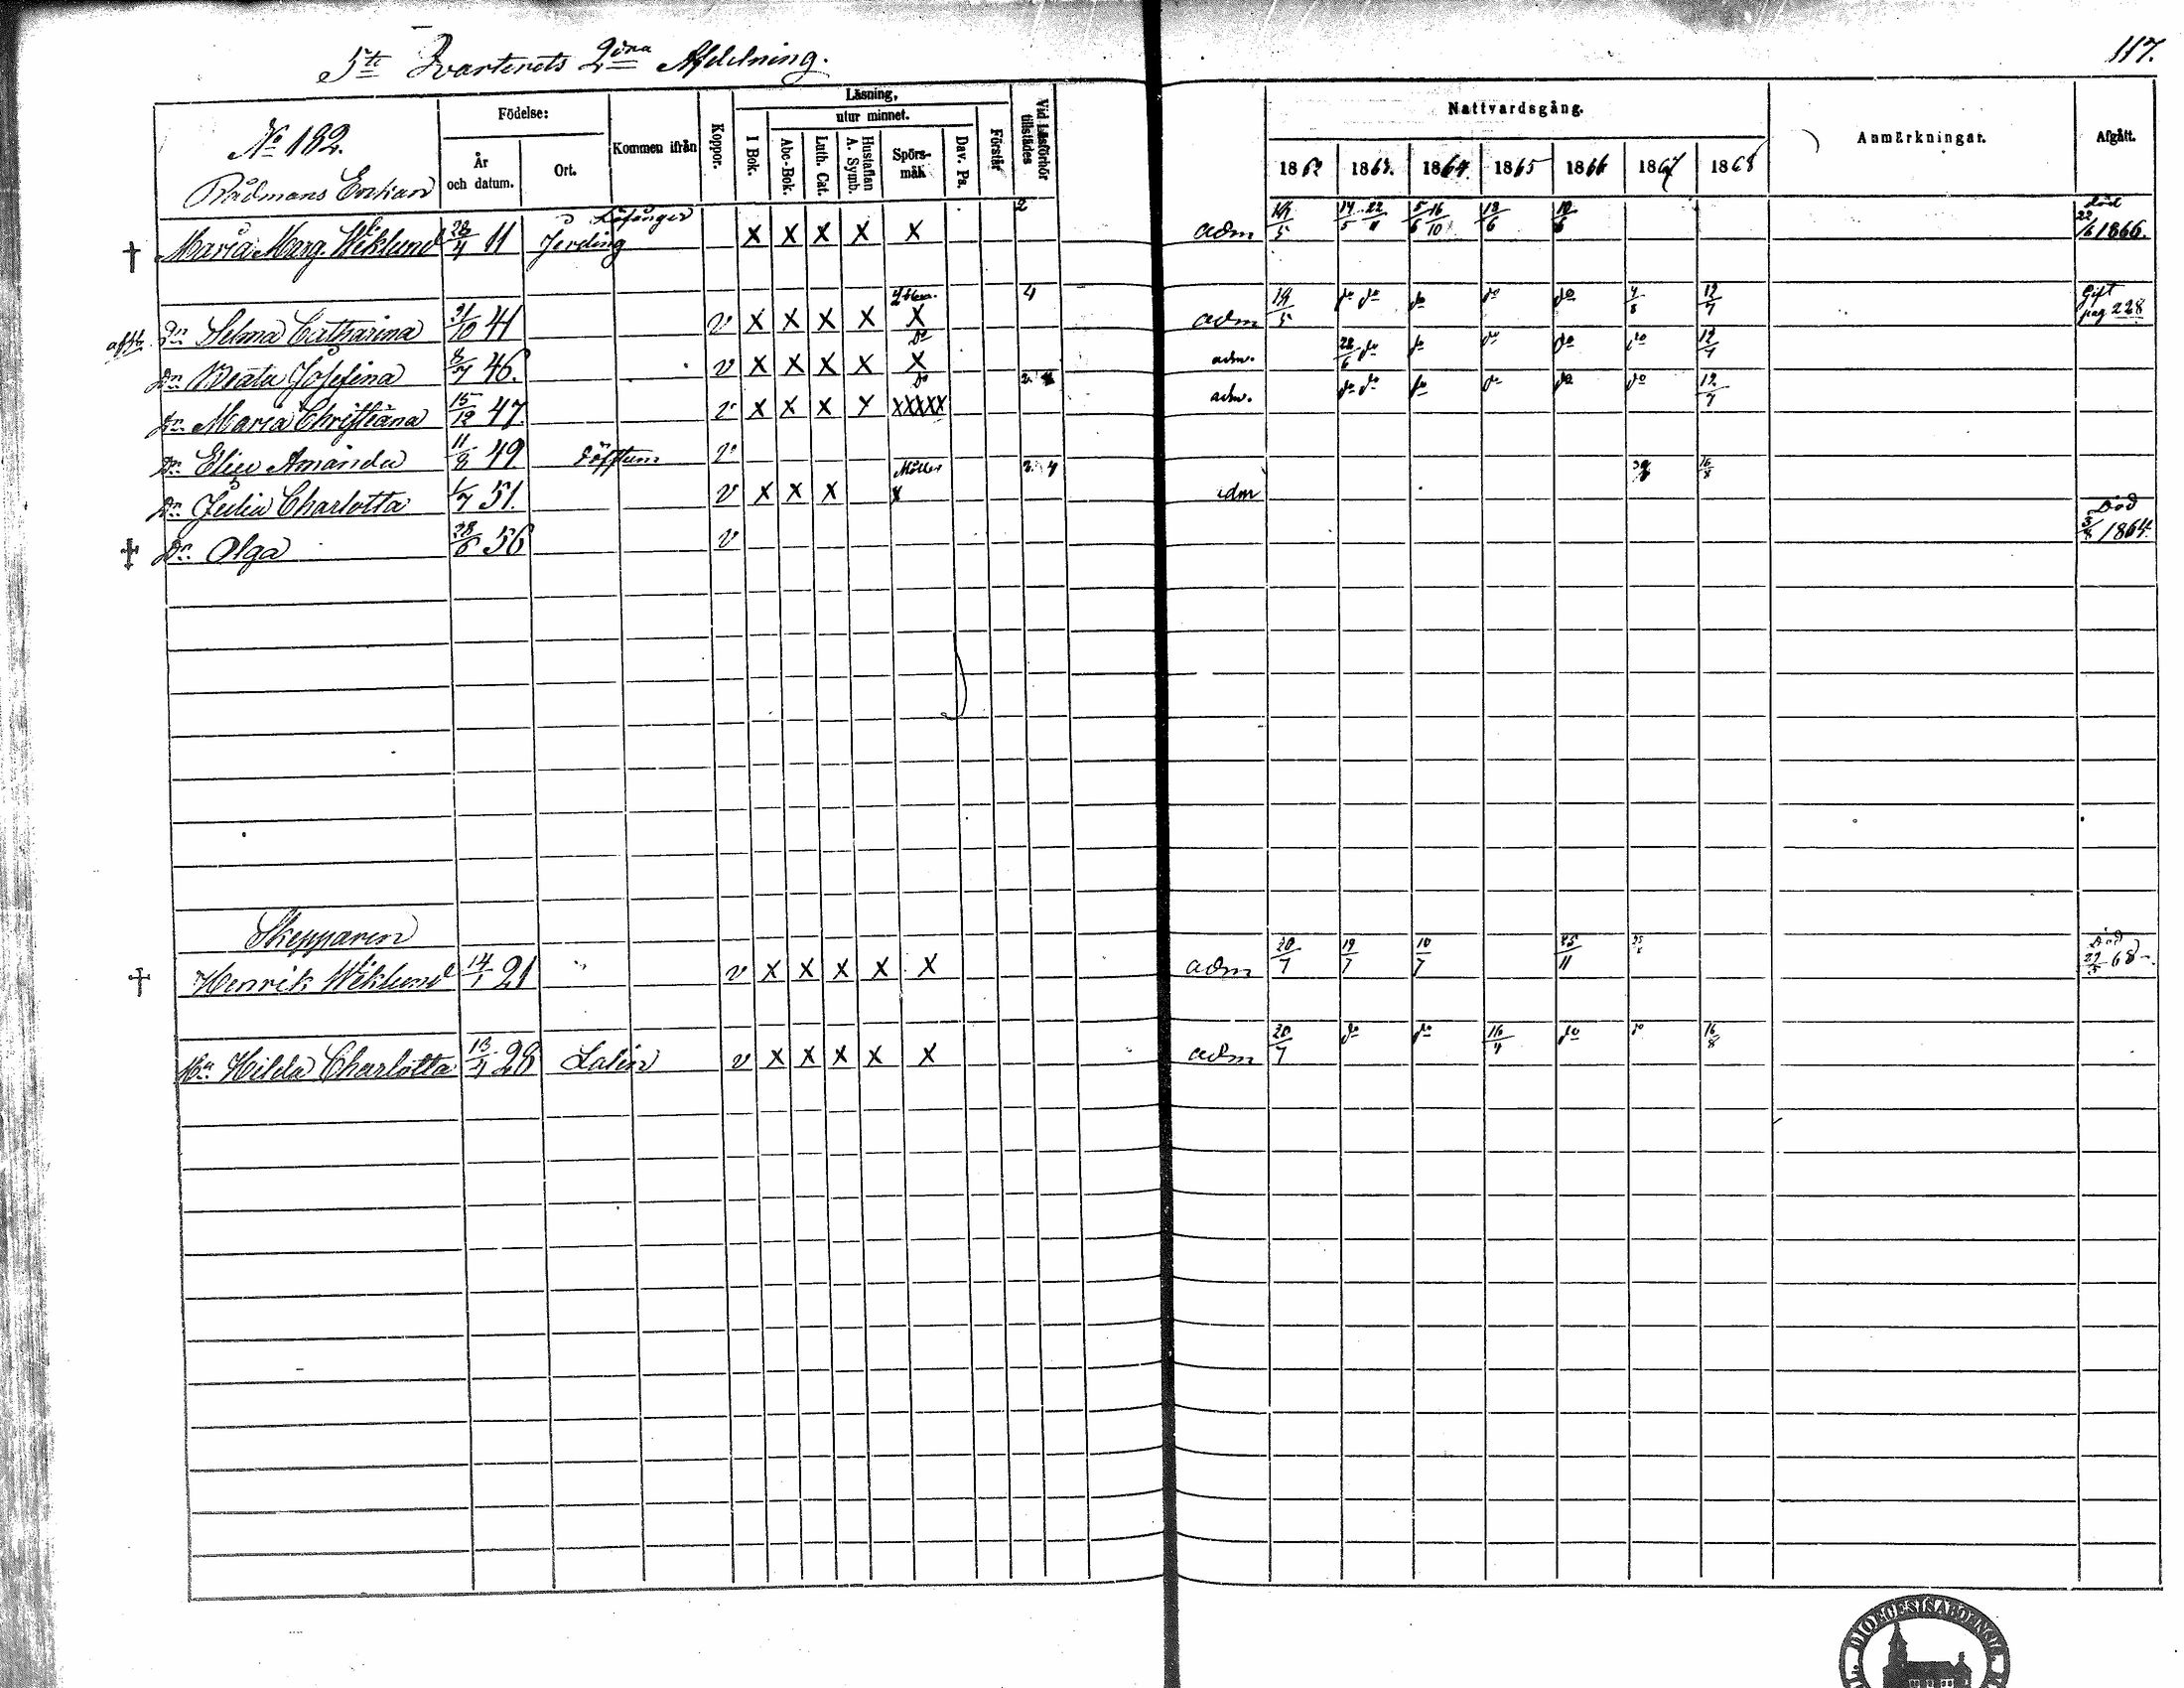 5te Qvarterets 2dra Afdelning.
117.
No 182.
Födelse:
År och datum.
Ort.
Kommen ifrån
Koppor.
Läsning,
utur minnet.
I Bok.
Abc-Bok.
Luth. Cat.
Hustaflan A. Symb.
Spörsmål.
Dav. Ps.
Förstår
Vid Läsförhör tillstädes
Nattvardsgång.
1862 1863. 1864. 1865 1866 1867 1868
Anmärkningar.
Afgått.
Rådmans Enkan
Maria Marg. Wiklund 28/4 11 X X X X X 2 adm 14/5 22/11 5/6 16/10 18/6 10/6 död 22/6 1866.
Dr. Selma Catharina 31/10 41 v X X X X X 4 adm 19/5 do do do do do 12/7 Gift pag 228
Dr. Beata Josefina 8/7 46. v X X X X X adm. 28/6 do do do do do 12/7
Dr. Maria Christiana 15/12 47. v X X X X XXXXX adm. do do do do do do 12/7
Dr. Elise Amanda 11/8 49 v
Dr. Julia Charlotta 1/7 51. v X X X X adm
Dr. Olga 28/6 56 v Död 3/8 1864.
Skepparen
Henrik Wiklund 14/1 21 v X X X X X adm 20/7 19/7 10/7 25/11 Död 68
Hu. Hilda Charlotta 28 v X X X X X adm 20/7 do do 16/4 do do 16/8